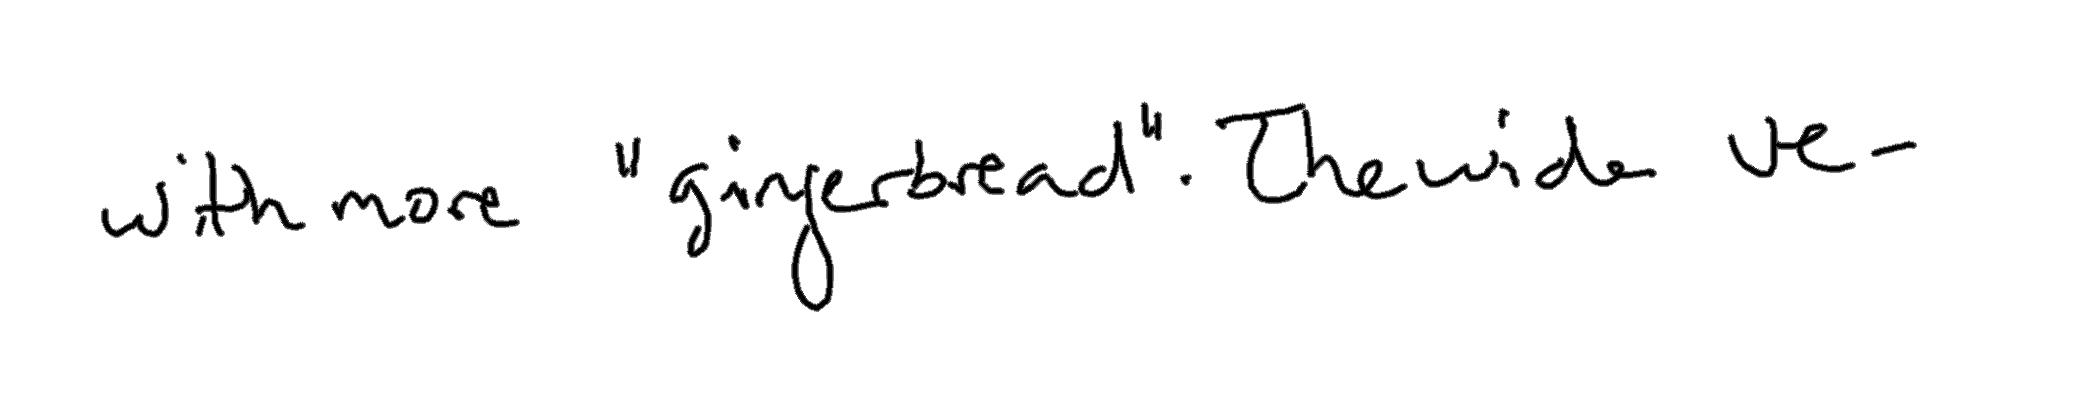 with more "gingerbread". The wide ve-